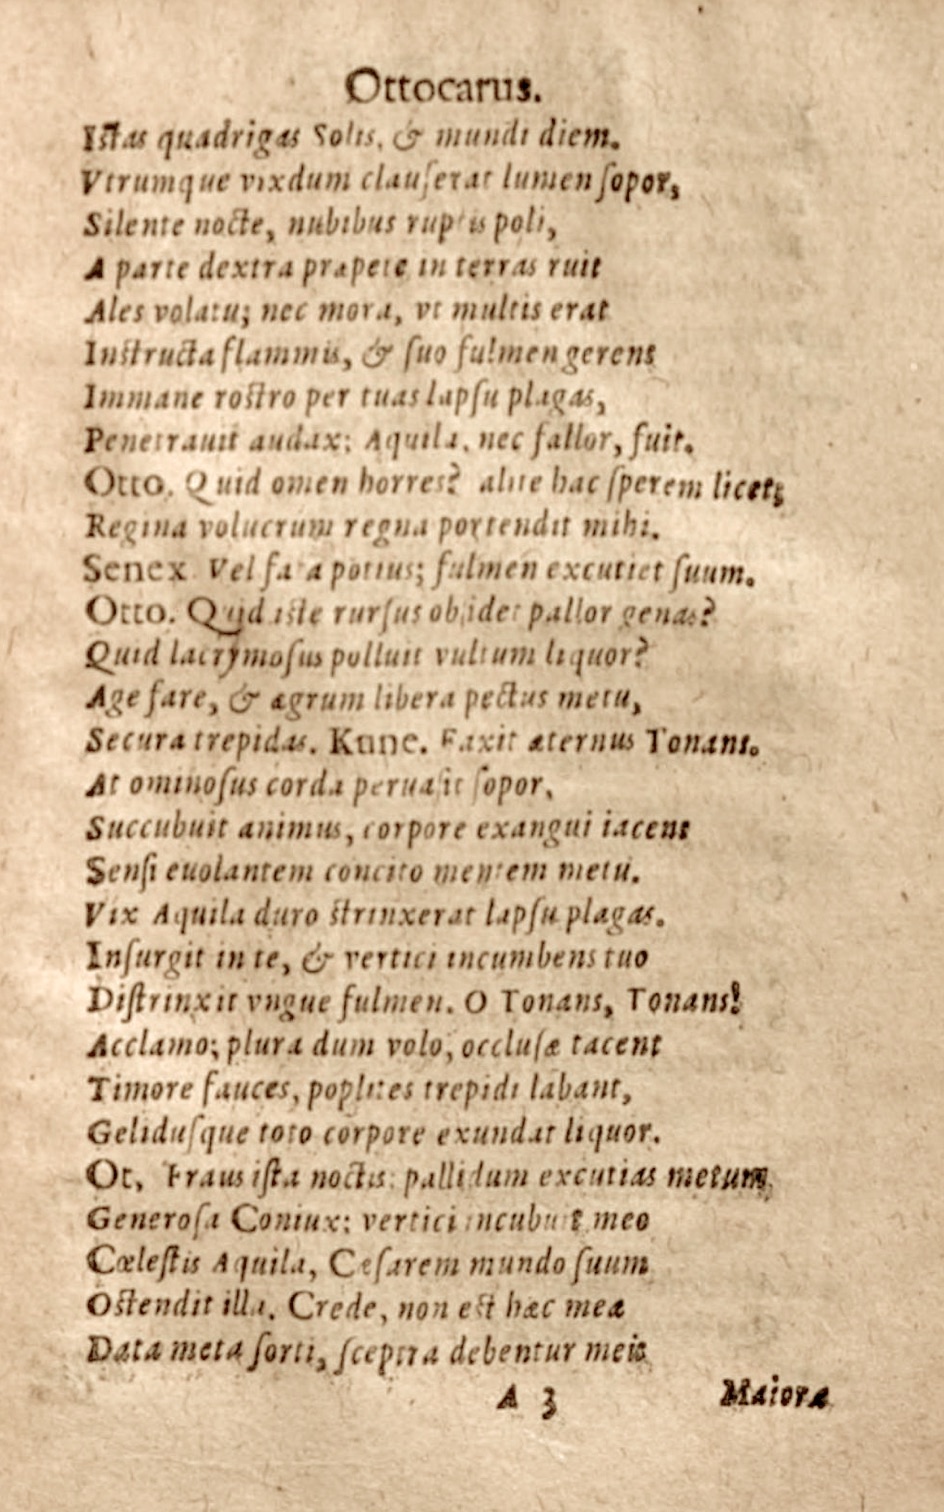 Ottocarus.
Iſtas quadrigas Solis, & mundi diem.
Vtrumque vixdum clauſerat lumen ſopor,
Silente nocte, nubibus ruptis poli,
A parte dextra præpete in terras ruit
Ales volatu; nec mora, vt multis erat
Inſtructa flammis, & ſuo fulmen gerens
Immane roſtro per tuas lapſu plagas,
Penetrauit audax; Aquila, nec fallor, fuit.
Otto. Quid omen horres? alite hac ſperem licet;
Regina volucrum regna portendit mihi.
Senex Vel fata potius; fulmen excutiet ſuum.
Otto. Quid iſte rurſus obſidet pallor genas?
Quid lacrymoſus polluit vultum liquor?
Age fare, & ægrum libera pectus metu,
Secura trepidas. Kune. Faxit æternus Tonans.
At ominoſus corda peruaſit ſopor,
Succubuit animus, corpore exangui iacens
Senſi euolantem concito mentem metu.
Vix Aquila duro ſtrinxerat lapſu plagas.
Inſurgit in te, & vertici incumbens tuo
Diſtrinxit vngue fulmen. O Tonans, Tonans!
Acclamo; plura dum volo, occluſæ tacent
Timore fauces, poplites trepidi labant,
Geliduſque toto corpore exundat liquor.
Ot, Fraus iſta noctis: pallidum excutias metum,
Generoſa Coniux: vertici incubuit meo
Cæleſtis Aquila, Ceſarem mundo ſuum
Oſtendit illa. Crede, non eſt hæc mea
Data meta ſorti, ſceptra debentur meis
A 3 Maiora